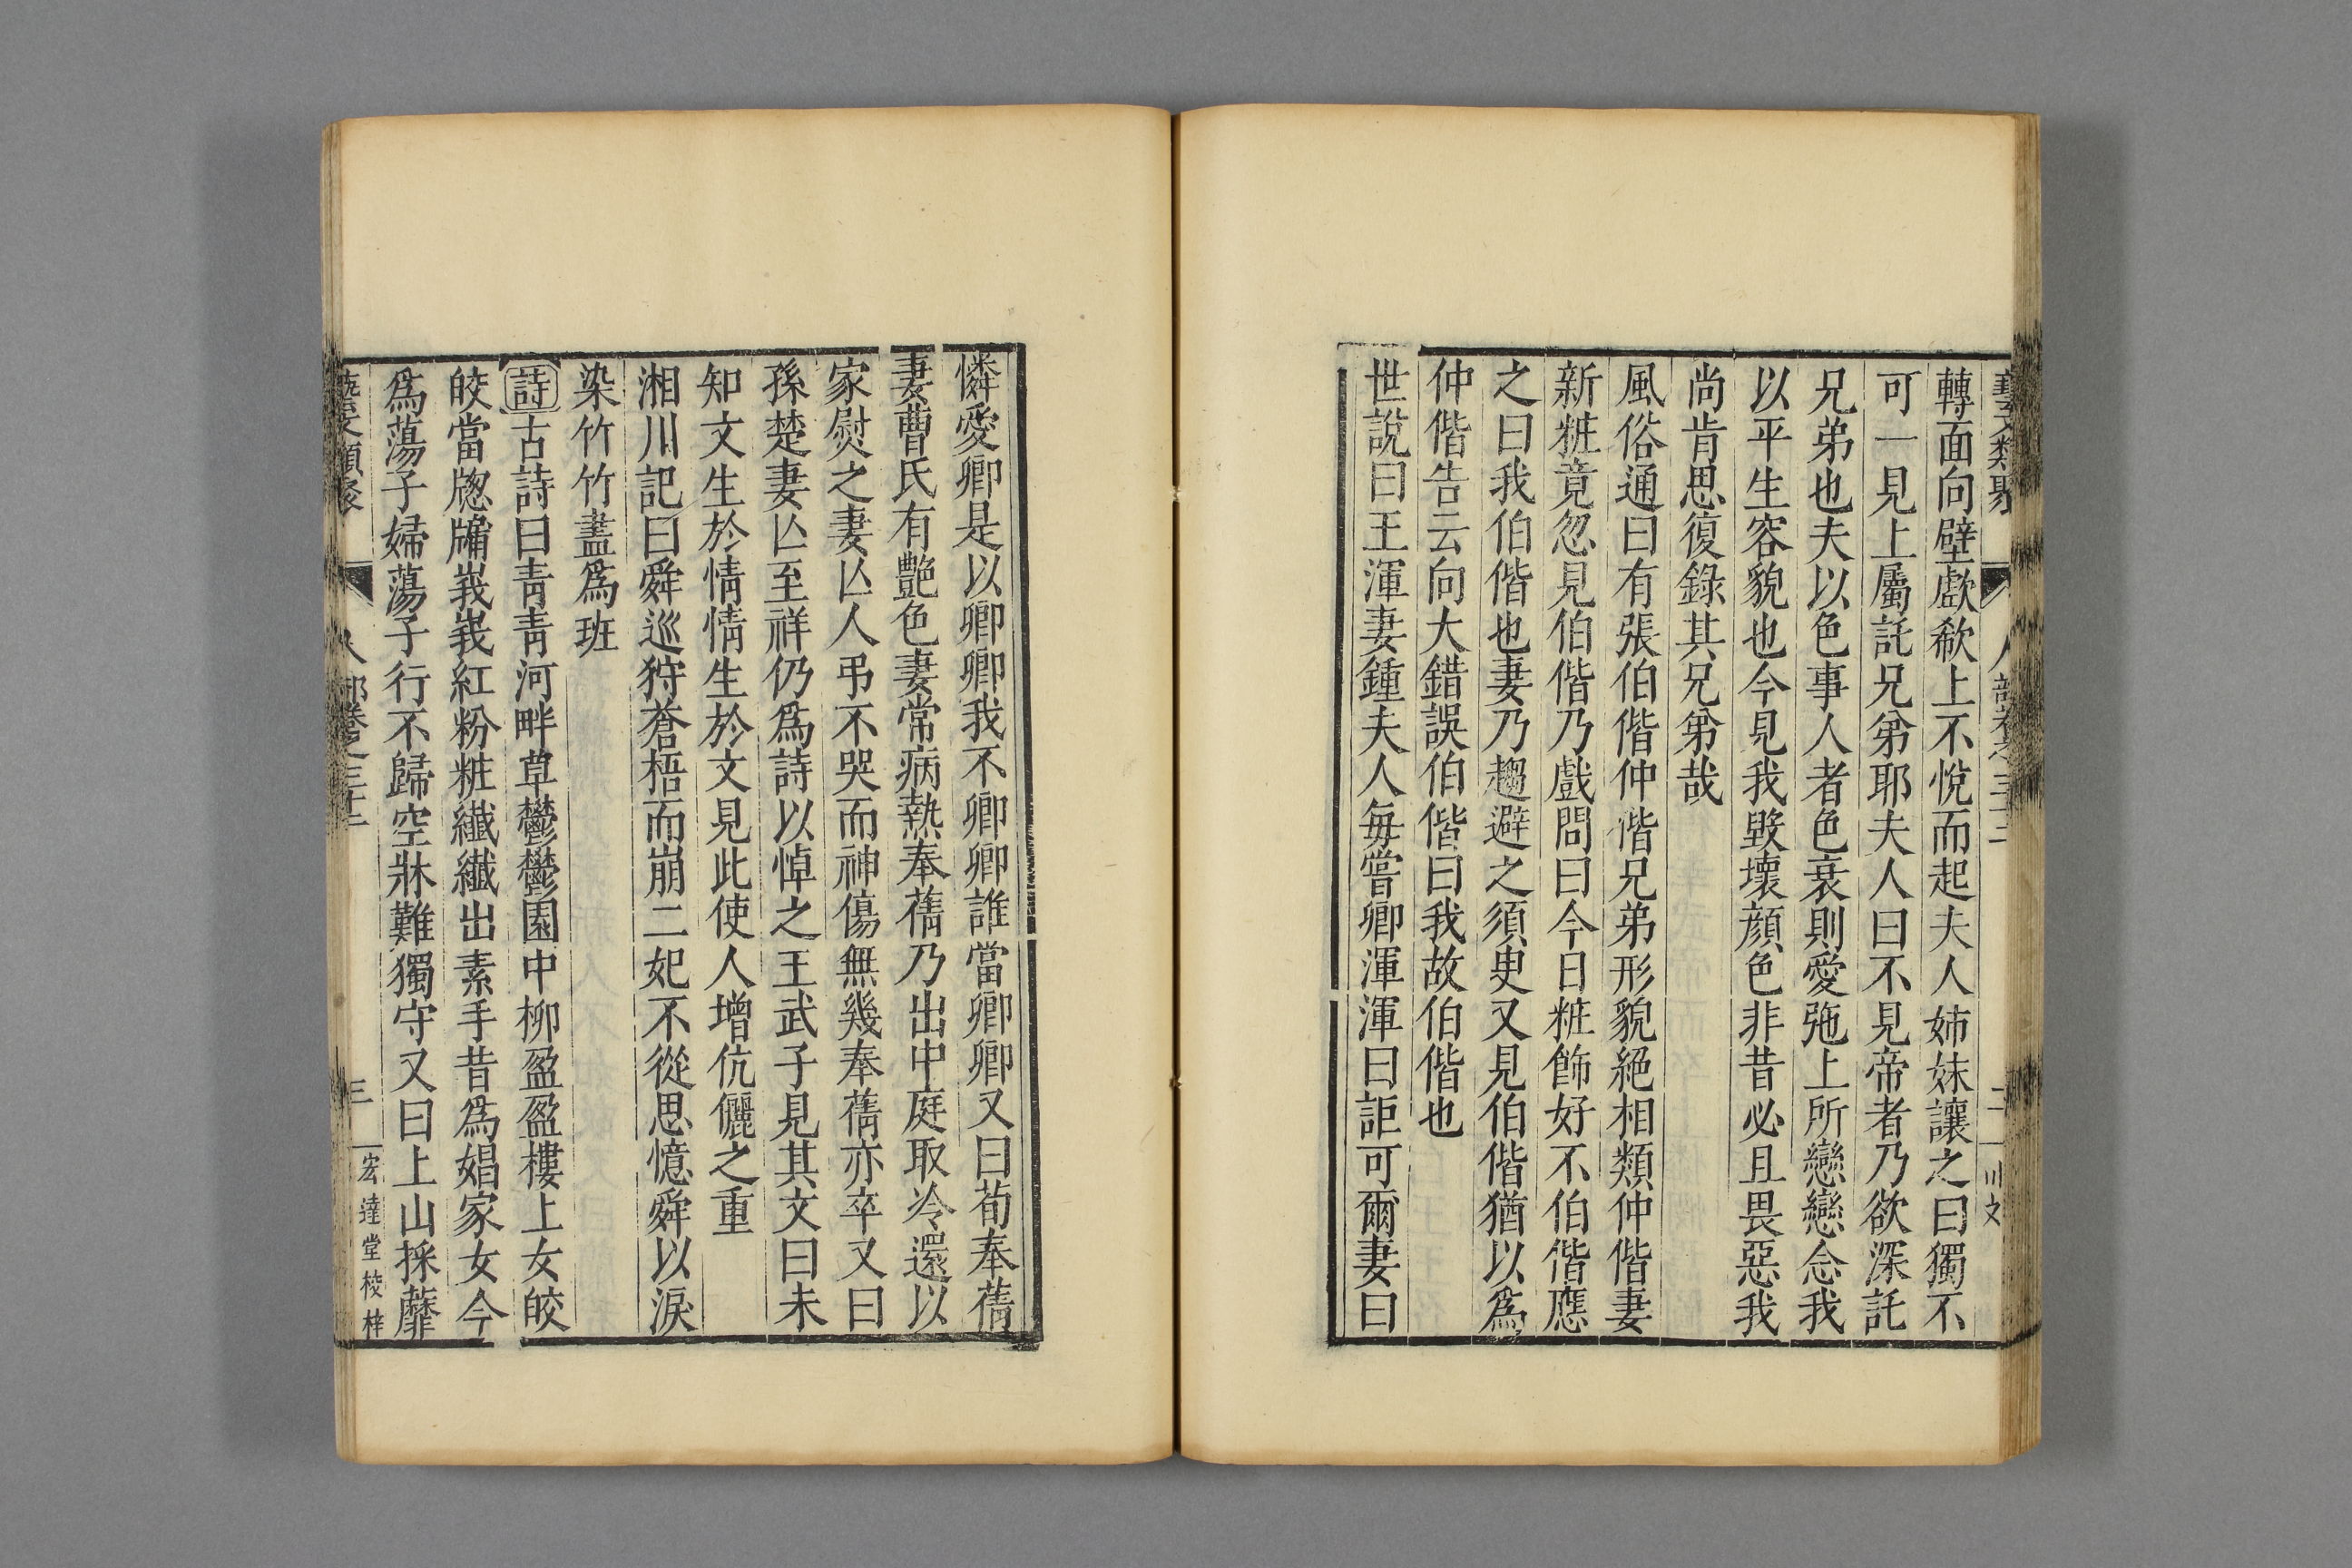 藝文類聚 人部卷之三十二 二
轉面向壁歔欷上不悅而起夫人姊妹讓之曰獨不
可一見上屬託兄弟耶夫人曰不見帝者乃欲深託
兄弟也夫以色事人者色衰則愛弛上所戀戀念我
以平生容貌也今見我毀壞顔色非昔必且畏惡我
尚肯思復錄其兄弟哉
風俗通曰有張伯偕仲偕兄弟形貌絕相類仲偕妻
新粧竟忽見伯偕乃戲問曰今日粧飾好不伯偕應
之曰我伯偕也妻乃趨避之須臾又見伯偕猶以爲
仲偕告云向大錯誤伯偕曰我故伯偕也
世說曰王渾妻鍾夫人每嘗卿渾渾曰詎可爾妻曰
憐愛卿是以卿卿我不卿卿誰當卿卿又曰荀奉蒨
妻曹氏有艷色妻常病熱奉蒨乃出中庭取冷還以
家熨之妻亾人弔不哭而神傷無幾奉蒨亦卒又曰
孫楚妻亾至祥仍爲詩以悼之王武子見其文曰未
知文生於情情生於文見此使人增伉儷之重
湘川記曰舜巡狩蒼梧而崩二妃不從思憶舜以淚
染竹竹盡爲班
詩古詩曰靑靑河畔草鬱鬱園中柳盈盈樓上女皎
皎當牕牖峩峩紅粉粧纖纖出素手昔爲娼家女今
爲蕩子婦蕩子行不歸空牀難獨守又曰上山採蘼
藝文類聚 人部卷之三十二 三 宏達堂棱梓